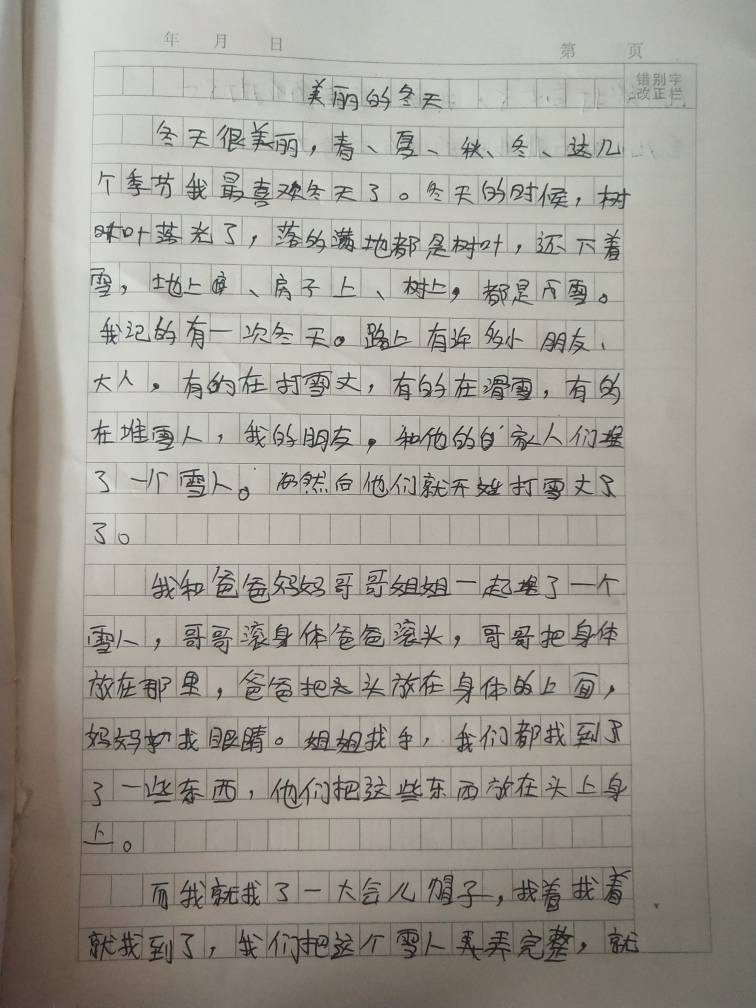 年 月 日 第 页
错别字
改正栏
美丽的冬天
冬天很美丽，春、夏、秋、冬、这几
个季节我最喜欢冬天了。冬天的时候，树
叶落光了，落的满地都是树叶，还下着
雪，地上、房子上、树上，都是雪。
我记的有一次冬天。路上有许多小朋友、
大人，有的在打雪丈，有的在滑雪，有的
在堆雪人，我的朋友，和他的家人们堆
了一个雪人。然后他们就开始打雪丈了
了。
我和爸爸妈妈哥哥姐姐一起堆了一个
雪人，哥哥滚身体爸爸滚头，哥哥把身体
放在那里，爸爸把头放在身体的上面，
妈妈找眼睛。姐姐找手，我们都找到了
了一些东西，他们把这些东西放在头上身
上。
而我就找了一大会儿帽子，找着找着
就找到了，我们把这个雪人弄弄完整，就